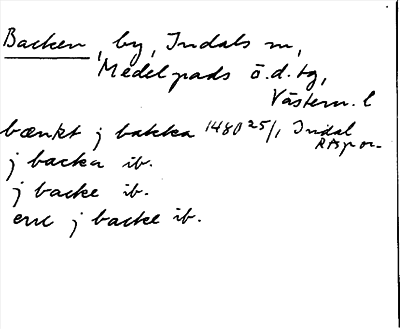 Backen, by, Indals sn,
Medelpads ö.d. tg,
Västern. l
bænkt j bakka 1480 25/1 Indal
RApor.
j backa ib.
j backe ib.
eric j backe ib.